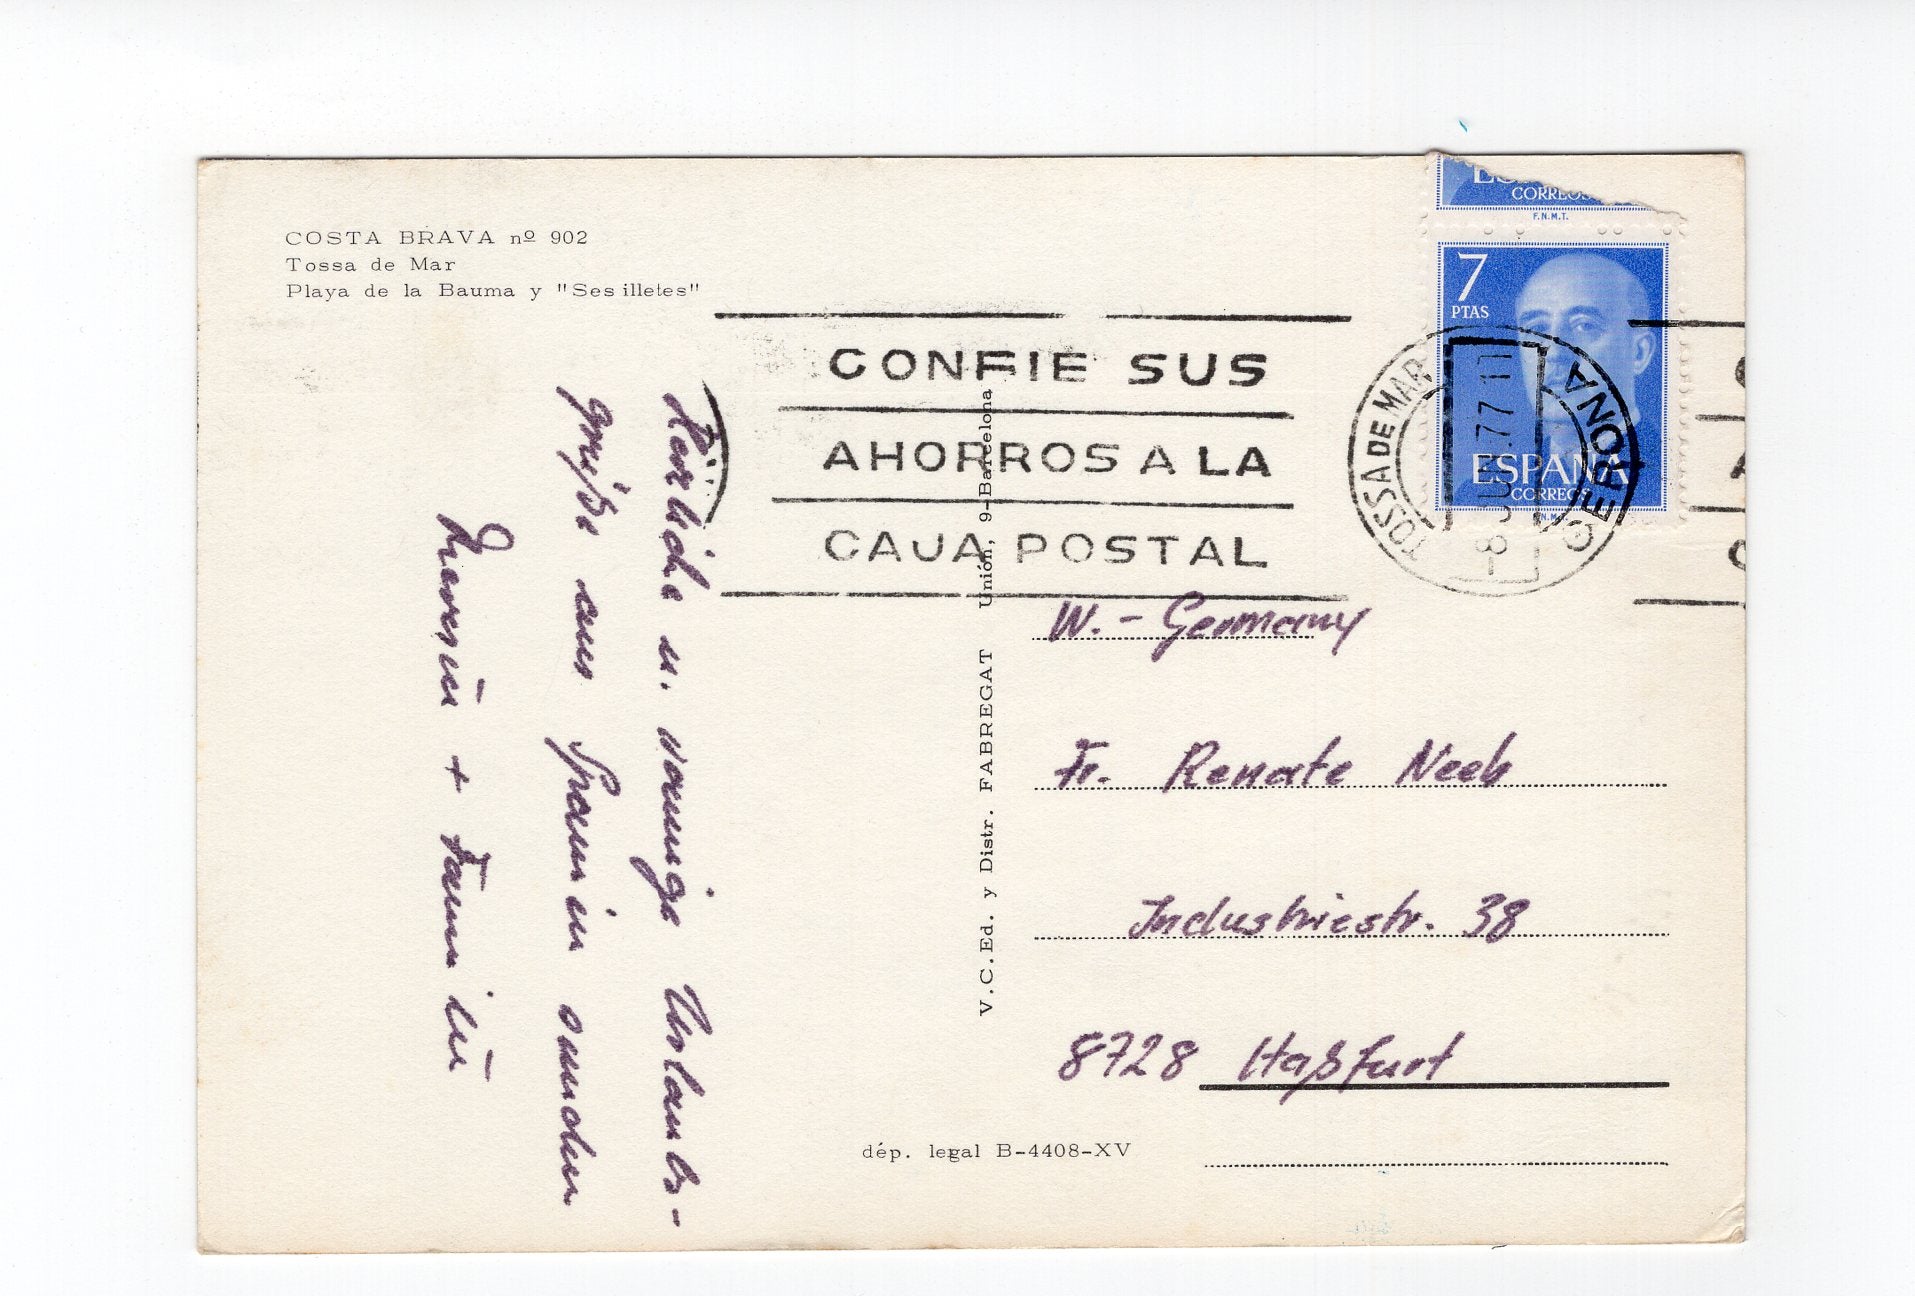 COSTA BRAVA nº 902
Tossa de Mar
Playa de la Bauma y "Ses illetes"
CORREOS
F.N.M.T.
7
PTAS
ESPAÑA
CORREOS
CONFIE SUS
AHORROS A LA
CAJA POSTAL
TOSSA DE MAR
GERONA
-8 JUN.77 11
Herzliche u. sonnige Urlaubs-
grüße aus Spanien senden
+ Familie
V.C.Ed. y Distr. FABREGAT Unión, 9-Barcelona
W.-Germany
Fr. Renate Neeb
Industriestr. 38
8728 Haßfurt
dép. legal B-4408-XV